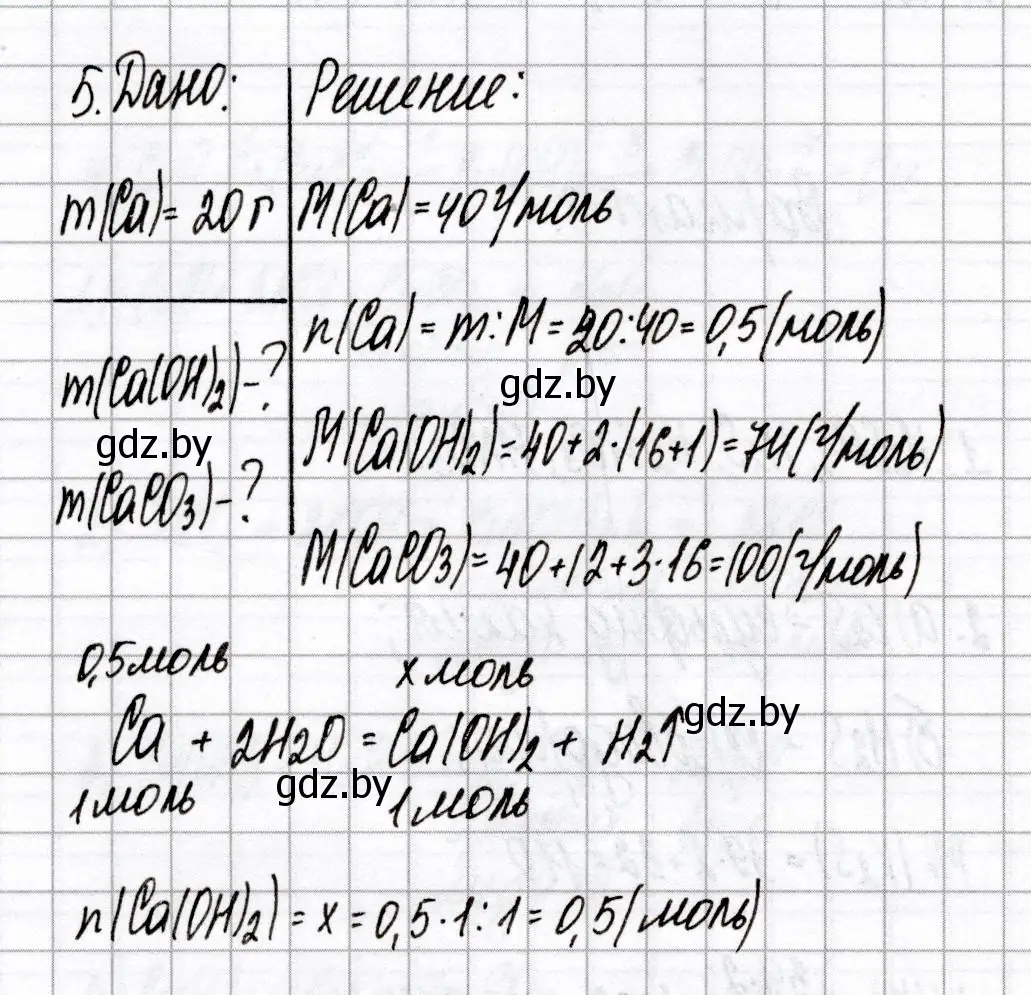 5. Дано:
m(Ca) = 20 г
m(Ca(OH)₂) - ?
gdz.by
m(CaCO₃) - ?
Решение:
M(Ca) = 40 г/моль
n(Ca) = m : M = 20 : 40 = 0,5 (моль)
gdz.by
M(Ca(OH)₂) = 40 + 2·(16+1) = 74 (г/моль)
M(CaCO₃) = 40 + 12 + 3·16 = 100 (г/моль)
0,5 моль x моль
Ca + 2H₂O = Ca(OH)₂ + H₂↑
gdz.by
1 моль 1 моль
gdz.by
n(Ca(OH)₂) = x = 0,5·1 : 1 = 0,5 (моль)